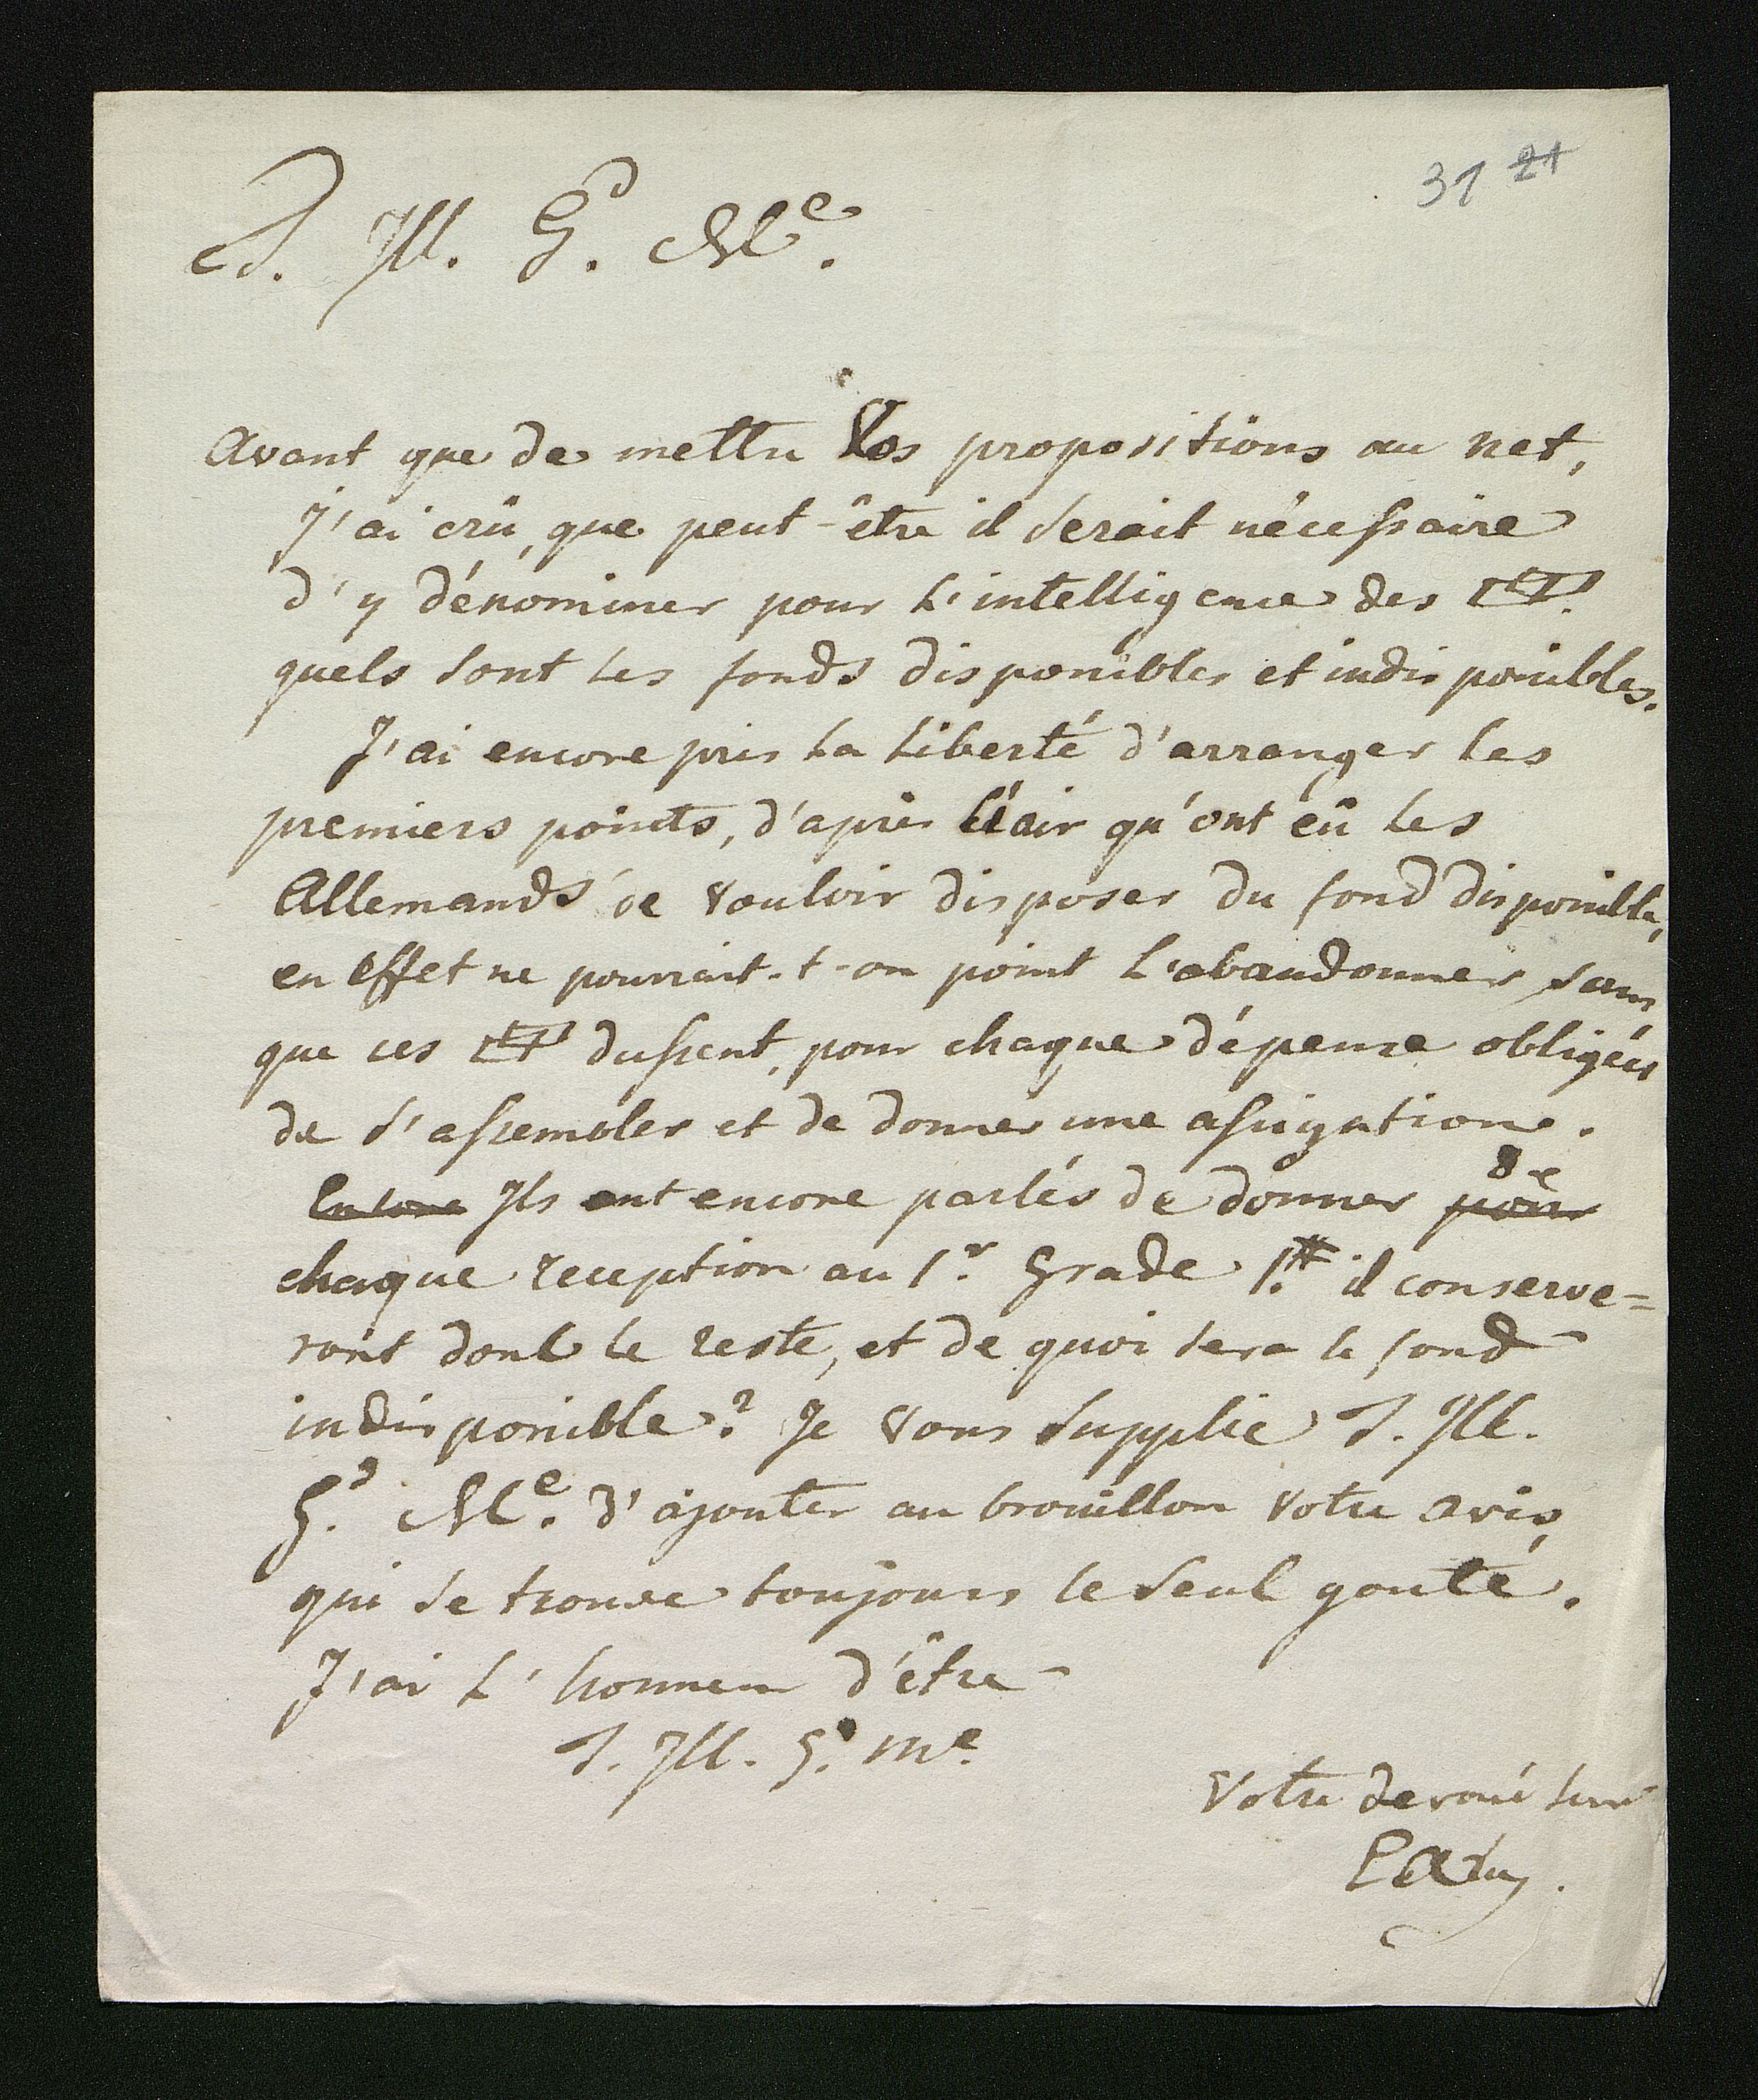 31 21
T. Ill. G.d Me.
Avant que de mettre Vos propositions au net,
J'ai crû, que peut-être il serait nécessaire
d'y dénominer pour l'intelligence des
quels sont les fonds disponibles et indisponibles.
J'ai encore pris la liberté d'arranger les
premiers points, d'après l'air qu'ont eû les
Allemands de vouloir disposer du fond disponible,
en effet ne pourrait-t-on point l'abandonner sans
que ces dussent, pour chaque dépense obligées
de s'assembler et de donner une assignation.
Encore Ils ont encore parlés de donner pour de
chaque reception au 1r. Grade 1.# il conserve=
ront donc le reste, et de quoi sera le fond
indisponible? Je Vous supplie T. Ill.
G.d Me. d'ajouter au brouillon Votre avis,
qui se trouve toujours le seul gouté.
J'ai l'honneur d'être
T. Ill. G.d Me.
Votre devoué